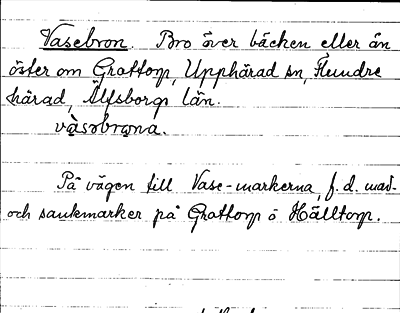 Vasebron. Bro över bäcken eller ån
öster om Grottorp, Upphärad sn, Flundre
härad, Älfsborgs län.
vàsəbrǫna.
På vägen till Vase-markerna, f.d. mad-
och sankmarker på Grottorp o Hälltorp.